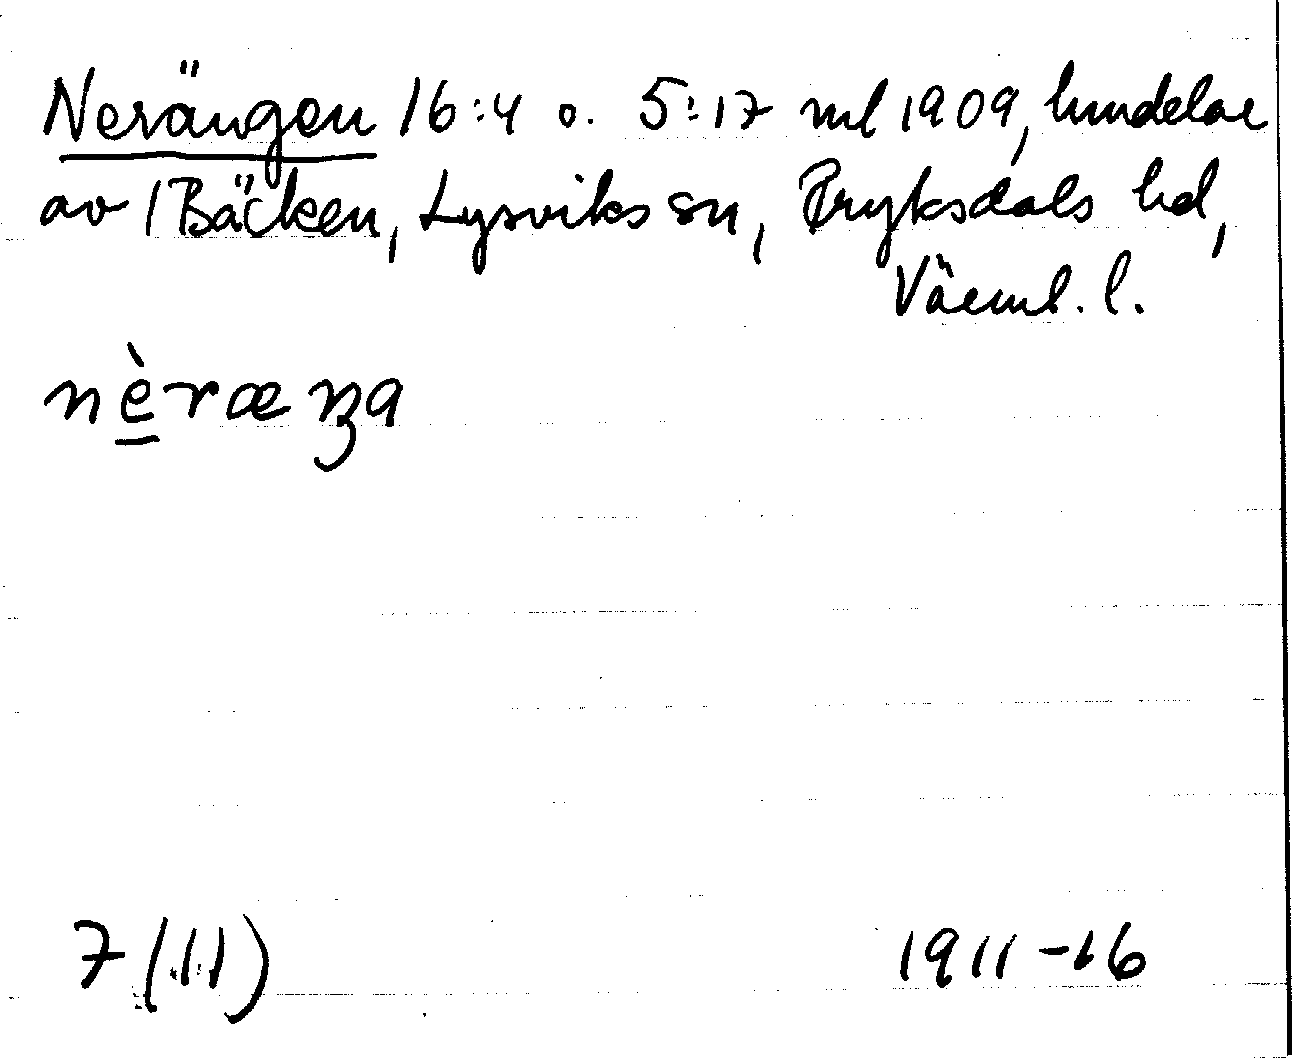 Nerängen 16:4 o. 5:17 ml 1909, hmdelar
av 1 Bäcken, Lysviks sn, Fryksdals hd,
Värml. l.
nèræŋa
7 (11)
1911-16